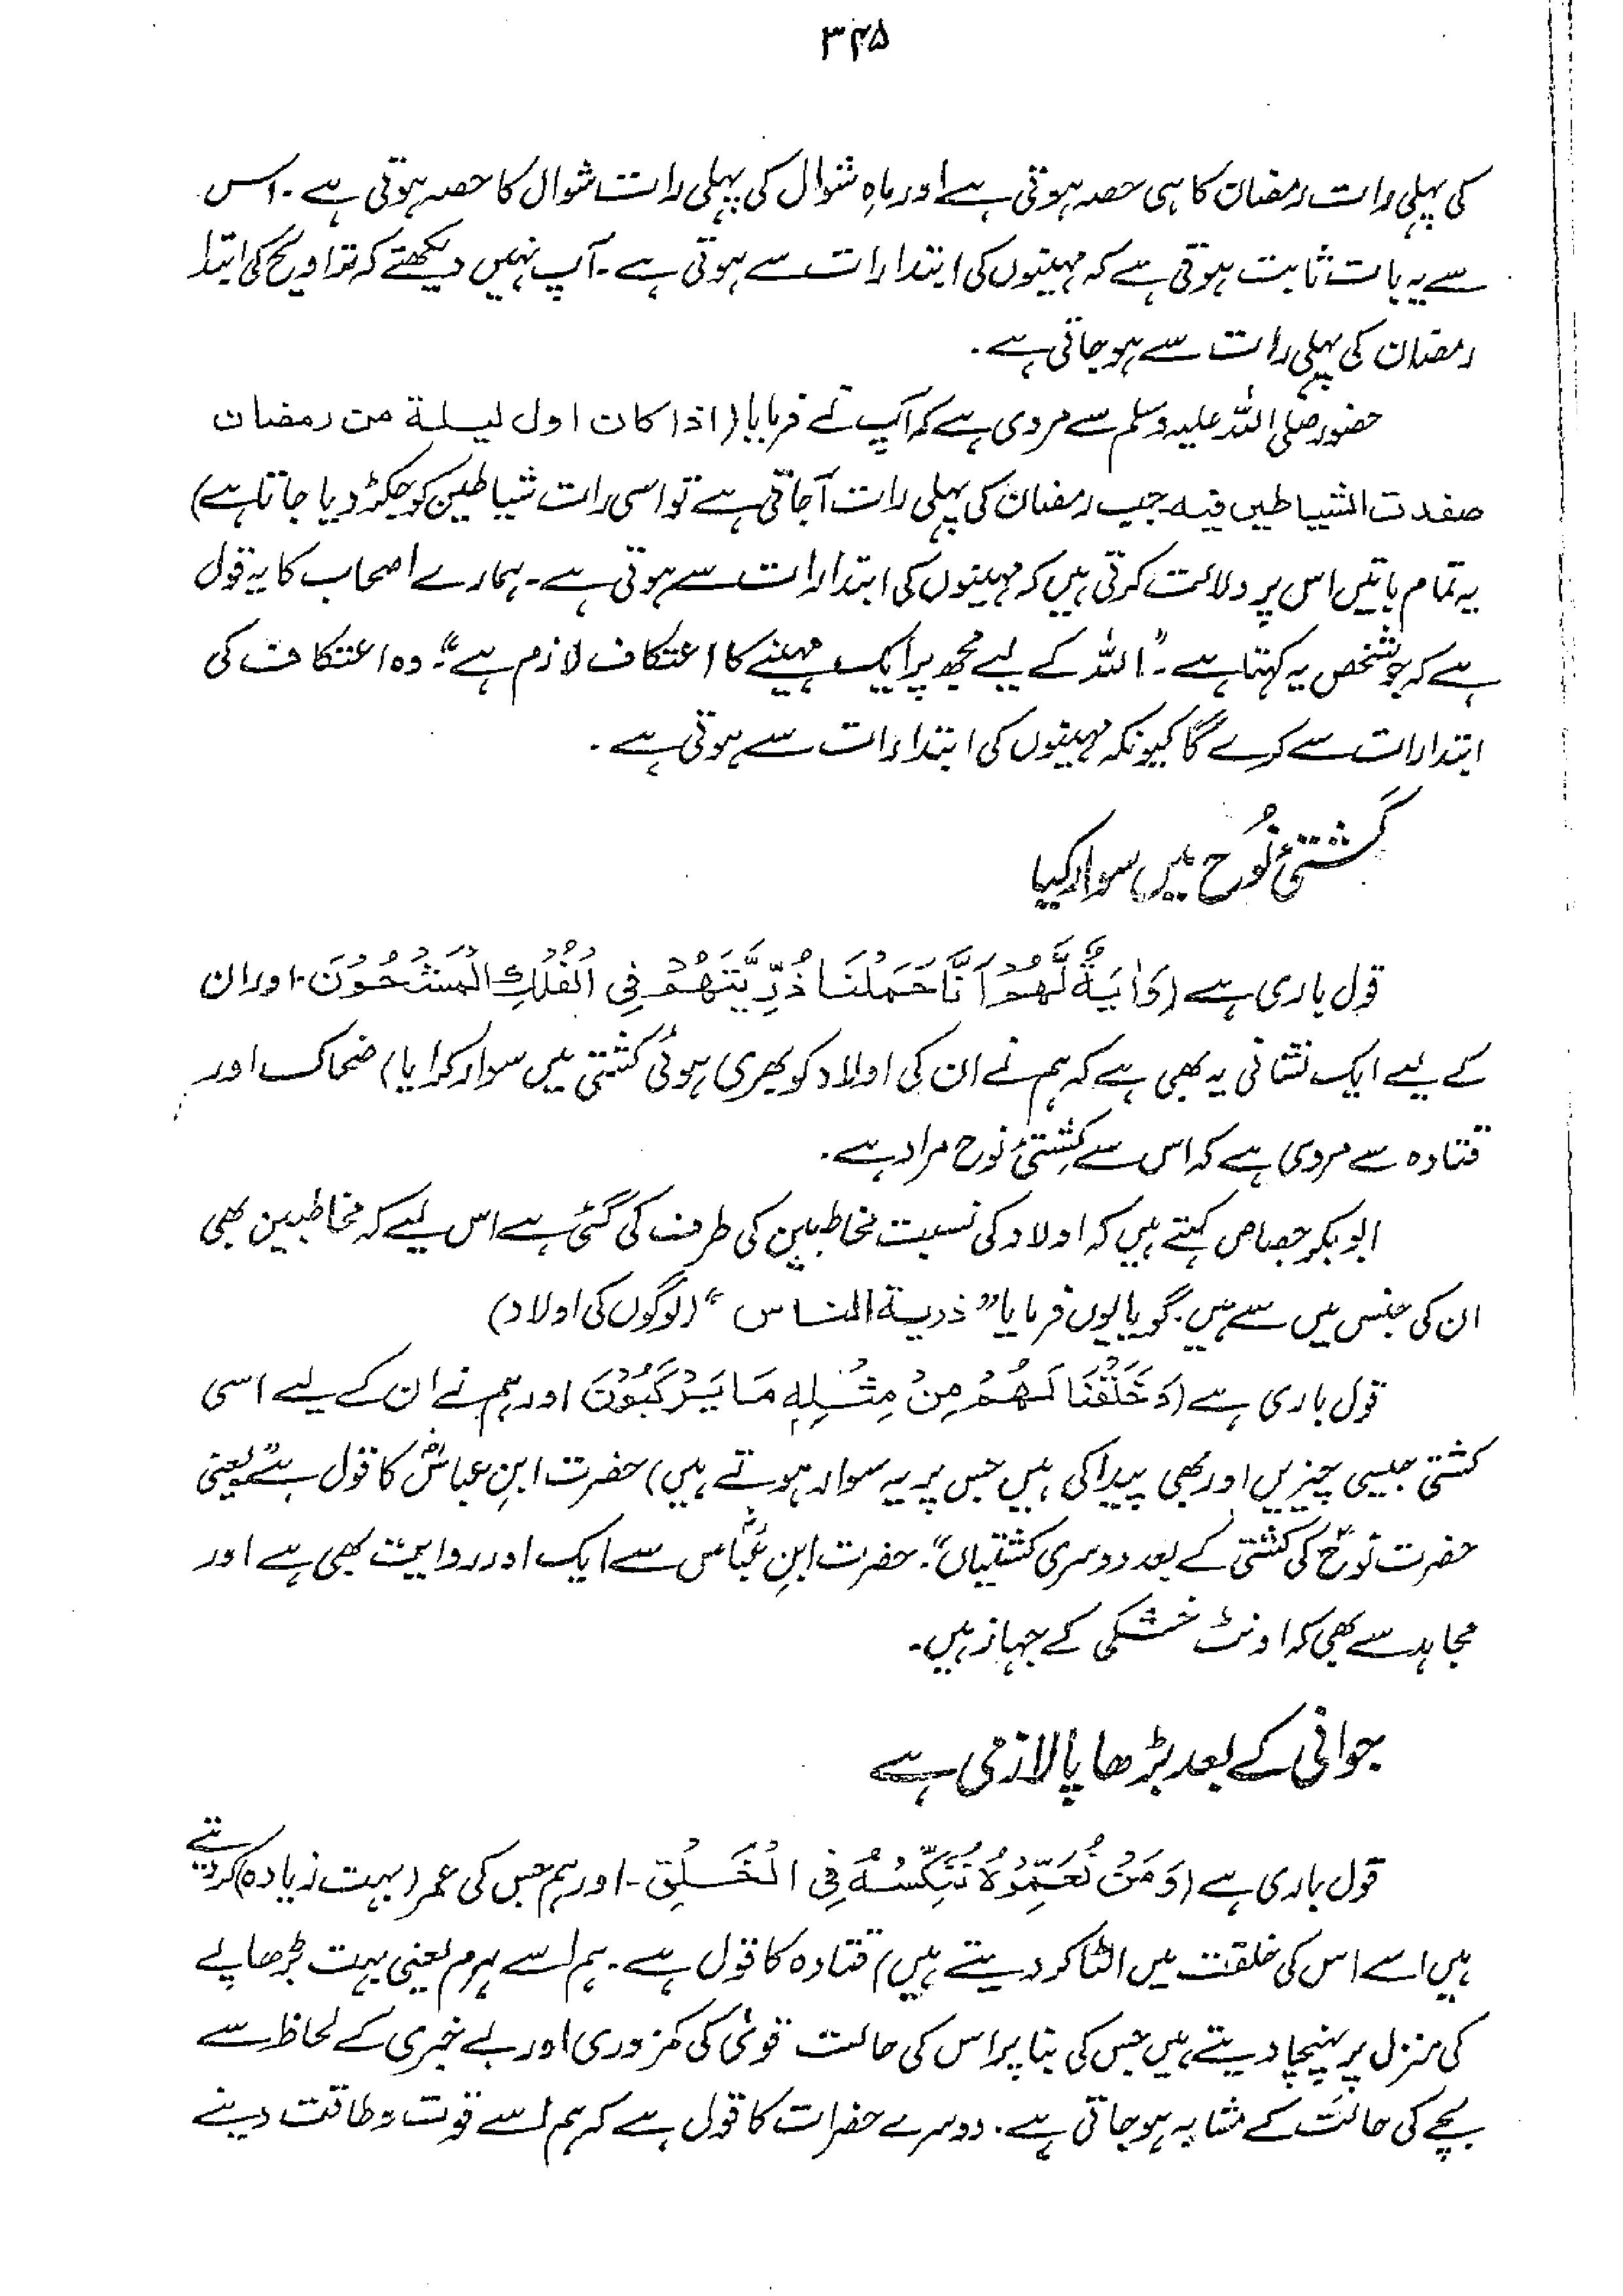 ۳۴۵
کی پہلی رات رمضان کا ہی حصہ ہوتی ہے اور ماہِ شوال کی پہلی رات شوال کا حصہ ہوتی ہے ۔ اس
سے یہ بات ثابت ہوتی ہے کہ مہینوں کی ابتدا رات سے ہوتی ہے ۔ آپ نہیں دیکھتے کہ تراویح کی ابتدا
رمضان کی پہلی رات سے ہو جاتی ہے ۔
حضور صلی اللہ علیہ وسلم سے مروی ہے کہ آپ نے فرمایا (اذا کان اول لیلة من رمضان
صفدت الشیاطین فیہ ۔ جب رمضان کی پہلی رات آجاتی ہے تو اسی رات شیاطین کو جکڑ دیا جاتا ہے)
یہ تمام باتیں اس پر دلالت کرتی ہیں کہ مہینوں کی ابتدا رات سے ہوتی ہے ۔ ہمارے اصحاب کا یہ قول
ہے کہ جو شخص یہ کہتا ہے ۔ "اللہ کے لیے مجھ پر ایک مہینے کا اعتکاف لازم ہے"۔ وہ اعتکاف کی
ابتدا رات سے کرے گا کیونکہ مہینوں کی ابتدا رات سے ہوتی ہے ۔
کشتیٔ نُوح میں سوار کیا
قول باری ہے (وَاٰیَةٌ لَّهُمْ اَنَّا حَمَلْنَا ذُرِّیَّتَهُمْ فِی الْفُلْكِ الْمَشْحُوْنَ ۔ اور ان
کے لیے ایک نشانی یہ بھی ہے کہ ہم نے ان کی اولاد کو بھری ہوئی کشتی میں سوار کرایا) ضحاک اور
قتادہ سے مروی ہے کہ اس سے کشتیٔ نوح مراد ہے ۔
ابوبکر جصاص کہتے ہیں کہ اولاد کی نسبت مخاطبین کی طرف کی گئی ہے اس لیے کہ مخاطبین بھی
ان کی جنس میں سے ہیں ۔ گویا یوں فرمایا "ذریة الناس" (لوگوں کی اولاد)
قول باری ہے (وَخَلَقْنَا لَهُمْ مِنْ مِثْلِهٖ مَا یَرْكَبُوْنَ اور ہم نے ان کے لیے اسی
کشتی جیسی چیزیں اور بھی پیدا کی ہیں جس پر یہ سوار ہوتے ہیں) حضرت ابنِ عباسؓ کا قول ہے "یعنی
حضرت نوحؑ کی کشتی کے بعد دوسری کشتیاں"۔ حضرت ابنِ عباسؓ سے ایک اور روایت بھی ہے اور
مجاہد سے بھی کہ اونٹ خشکی کے جہاز ہیں ۔
جوانی کے بعد بڑھاپا لازمی ہے
قول باری ہے (وَمَنْ نُعَمِّرْهُ نُنَكِّسْهُ فِی الْخَلْقِ ۔ اور ہم جس کی عمر (بہت زیادہ) کر دیتے
ہیں اسے اس کی خلقت میں الٹا کر دیتے ہیں) قتادہ کا قول ہے ۔ ہم اسے ہرم یعنی بہت بڑھاپے
کی منزل پر پہنچا دیتے ہیں جس کی بنا پر اس کی حالت قویٰ کی کمزوری اور بے خبری کے لحاظ سے
بچے کی حالت کے مشابہ ہو جاتی ہے ۔ دوسرے حضرات کا قول ہے کہ ہم اسے قوت و طاقت دینے